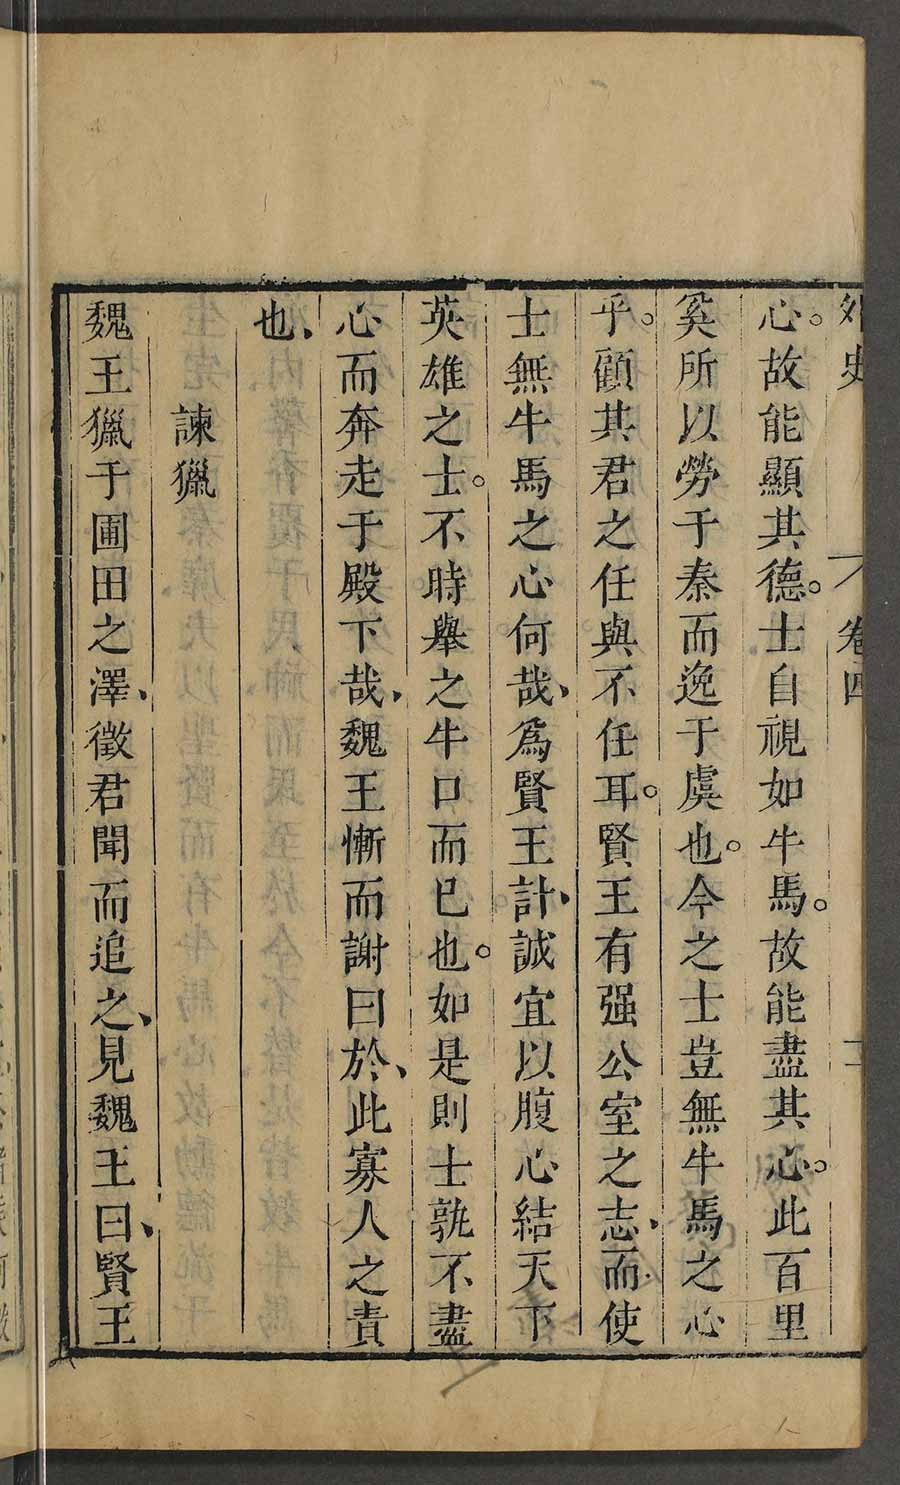 外史 卷四
心。故能顯其德。士自視如牛馬。故能盡其心。此百里
奚所以勞于秦而逸于虞也。今之士豈無牛馬之心
乎。顧其君之任與不任耳。賢王有强公室之志、而使
士無牛馬之心何哉、爲賢王計、誠宜以腹心結天下
英雄之士。不時舉之牛口而已也。如是則士孰不盡
心而奔走于殿下哉、魏王慚而謝曰於、此寡人之責
也、
諫獵
魏王獵于圃田之澤、徵君聞而追之、見魏王曰、賢王